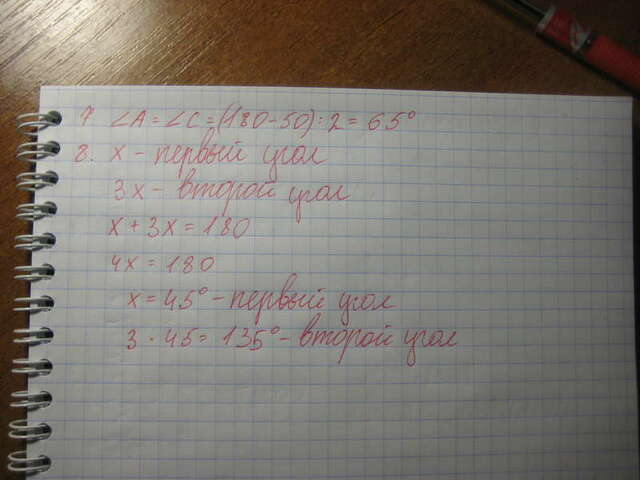 7 ∠A = ∠C = (180-50) : 2 = 65°
8. x - первый угол
3x - второй угол
x + 3x = 180
4x = 180
x = 45° - первый угол
3 · 45 = 135° - второй угол